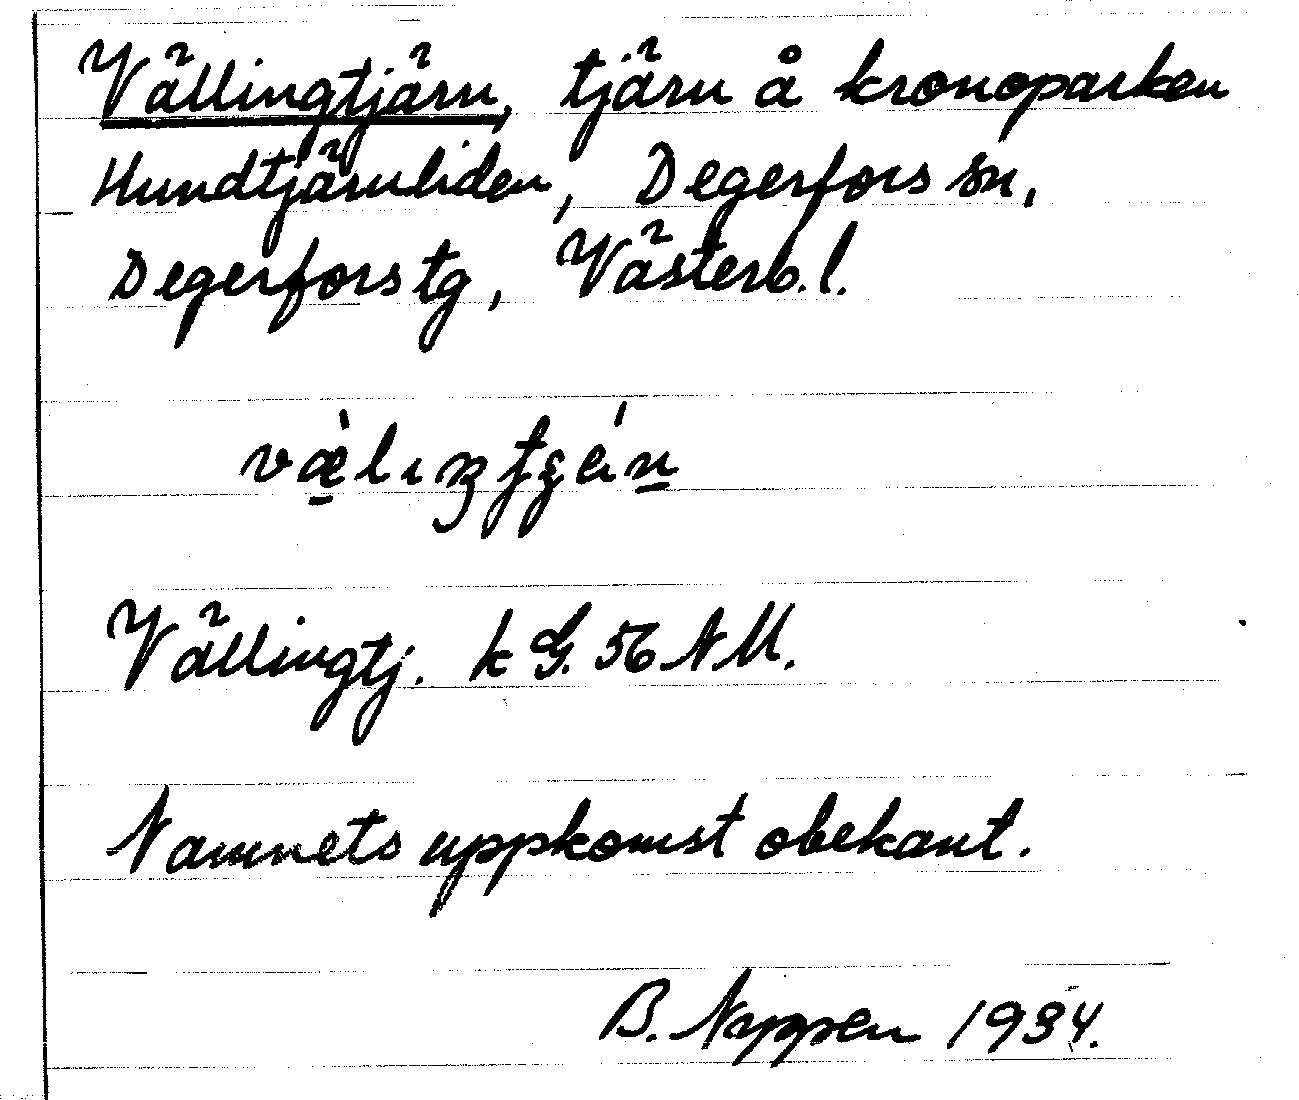 Vällingtjärn, tjärn å kronoparken
Hundtjärnliden, Degerfors sn,
Degerfors tg, Västerb. l.
Vällingtj. k G. 56 NM.
Namnets uppkomst obekant.
B. Nyppen 1934.